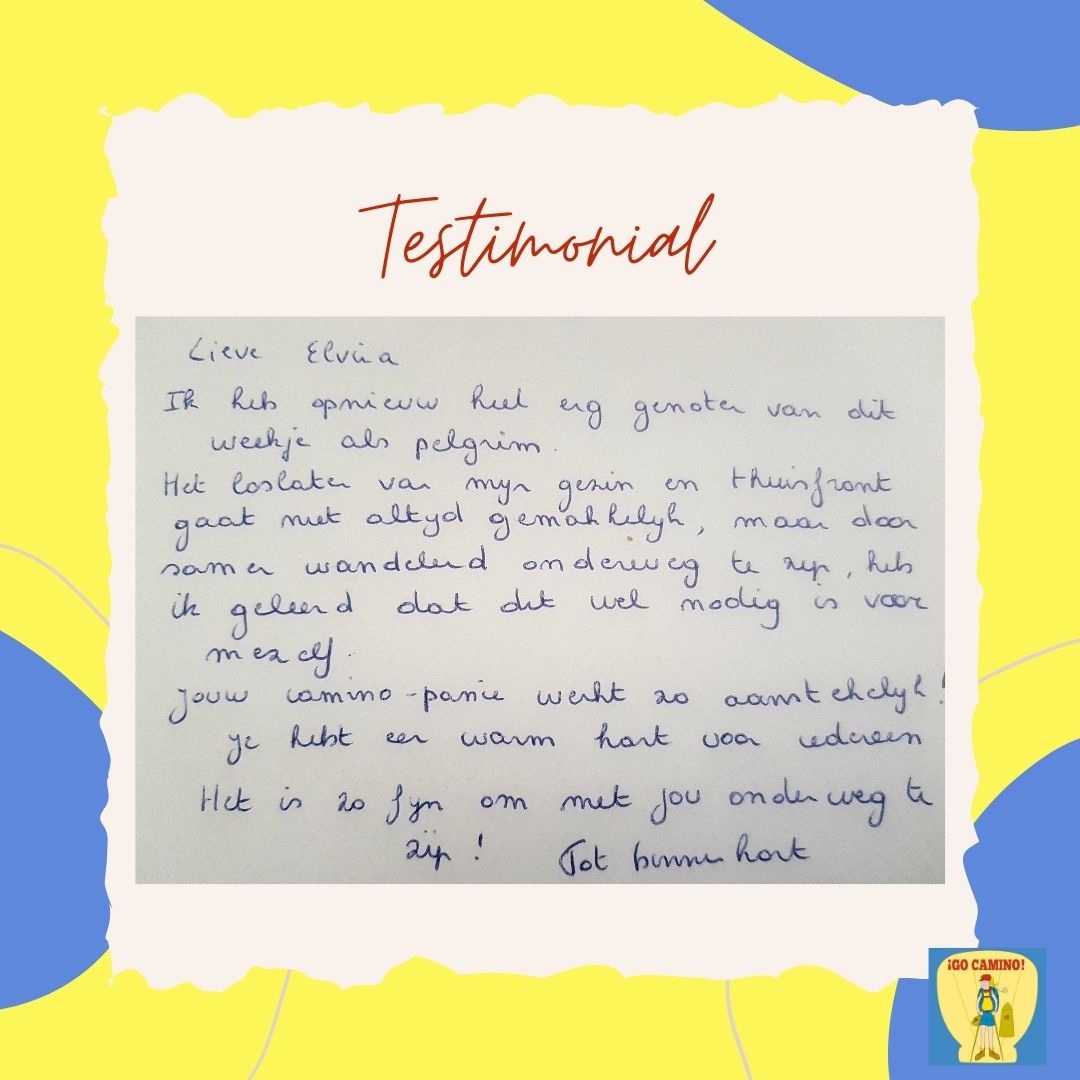 Testimonial
Lieve Elvira
Ik heb opnieuw heel erg genoten van dit
weekje als pelgrim.
Het loslaten van mijn gezin en thuisfront
gaat niet altijd gemakkelijk, maar door
samen wandelend onderweg te zijn, heb
ik geleerd dat dit wel nodig is voor
mezelf.
Jouw camino-panie werkt zo aanstekelijk!
je hebt een warm hart voor iedereen
Het is zo fijn om met jou onderweg te
zijn! Tot binnenkort
¡GO CAMINO!